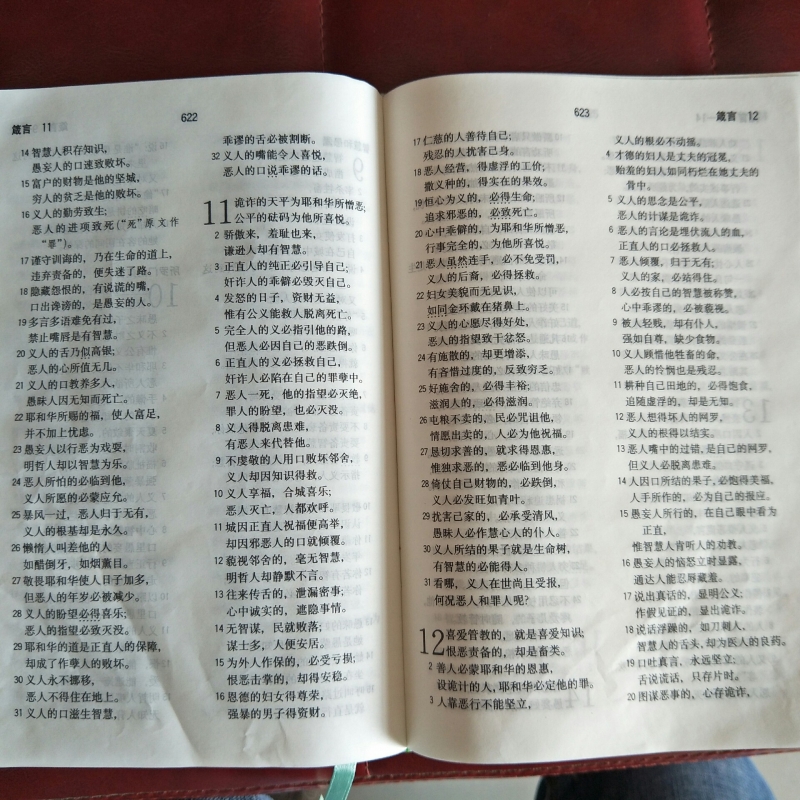 箴言 11
622
14 智慧人积存知识，
愚妄人的口速致败坏。
15 富户的财物是他的坚城，
穷人的贫乏是他的败坏。
16 义人的勤劳致生；
恶人的进项致死(“死”原文作
“罪”)。
17 谨守训诲的，乃在生命的道上，
违弃责备的，便失迷了路。
18 隐藏怨恨的，有说谎的嘴，
口出谗谤的，是愚妄的人。
19 多言多语难免有过，
禁止嘴唇是有智慧。
20 义人的舌乃似高银；
恶人的心所值无几。
21 义人的口教养多人，
愚昧人因无知而死亡。
22 耶和华所赐的福，使人富足，
并不加上忧虑。
23 愚妄人以行恶为戏耍，
明哲人却以智慧为乐。
24 恶人所怕的必临到他，
义人所愿的必蒙应允。
25 暴风一过，恶人归于无有，
义人的根基却是永久。
26 懒惰人叫差他的人
如醋倒牙，如烟薰目。
27 敬畏耶和华使人日子加多，
但恶人的年岁必被减少。
28 义人的盼望必得喜乐；
恶人的指望必致灭没。
29 耶和华的道是正直人的保障，
却成了作孽人的败坏。
30 义人永不挪移，
恶人不得住在地上。
31 义人的口滋生智慧，
乖谬的舌必被割断。
32 义人的嘴能令人喜悦，
恶人的口说乖谬的话。
11 诡诈的天平为耶和华所憎恶；
公平的砝码为他所喜悦。
2 骄傲来，羞耻也来，
谦逊人却有智慧。
3 正直人的纯正必引导自己；
奸诈人的乖僻必毁灭自己。
4 发怒的日子，资财无益，
惟有公义能救人脱离死亡。
5 完全人的义必指引他的路，
但恶人必因自己的恶跌倒。
6 正直人的义必拯救自己，
奸诈人必陷在自己的罪孽中。
7 恶人一死，他的指望必灭绝，
罪人的盼望，也必灭没。
8 义人得脱离患难，
有恶人来代替他。
9 不虔敬的人用口败坏邻舍，
义人却因知识得救。
10 义人享福，合城喜乐；
恶人灭亡，人都欢呼。
11 城因正直人祝福便高举，
却因邪恶人的口就倾覆。
12 藐视邻舍的，毫无智慧，
明哲人却静默不言。
13 往来传舌的，泄漏密事；
心中诚实的，遮隐事情。
14 无智谋，民就败落；
谋士多，人便安居。
15 为外人作保的，必受亏损；
恨恶击掌的，却得安稳。
16 恩德的妇女得尊荣，
强暴的男子得资财。
623
箴言 12
17 仁慈的人善待自己；
残忍的人扰害己身。
18 恶人经营，得虚浮的工价；
撒义种的，得实在的果效。
19 恒心为义的，必得生命；
追求邪恶的，必致死亡。
20 心中乖僻的，为耶和华所憎恶，
行事完全的，为他所喜悦。
21 恶人虽然连手，必不免受罚，
义人的后裔，必得拯救。
22 妇女美貌而无见识，
如同金环戴在猪鼻上。
23 义人的心愿尽得好处，
恶人的指望致干忿怒。
24 有施散的，却更增添，
有吝惜过度的，反致穷乏。
25 好施舍的，必得丰裕；
滋润人的，必得滋润。
26 屯粮不卖的，民必咒诅他，
情愿出卖的，人必为他祝福。
27 恳切求善的，就求得恩惠，
惟独求恶的，恶必临到他身。
28 倚仗自己财物的，必跌倒，
义人必发旺如青叶。
29 扰害己家的，必承受清风，
愚昧人必作慧心人的仆人。
30 义人所结的果子就是生命树，
有智慧的必能得人。
31 看哪，义人在世尚且受报，
何况恶人和罪人呢？
12 喜爱管教的，就是喜爱知识；
恨恶责备的，却是畜类。
2 善人必蒙耶和华的恩惠，
设诡计的人，耶和华必定他的罪。
3 人靠恶行不能坚立，
义人的根必不动摇。
4 才德的妇人是丈夫的冠冕，
贻羞的妇人如同朽烂在她丈夫的
骨中。
5 义人的思念是公平，
恶人的计谋是诡诈。
6 恶人的言论是埋伏流人的血，
正直人的口必拯救人。
7 恶人倾覆，归于无有；
义人的家，必站得住。
8 人必按自己的智慧被称赞，
心中乖谬的，必被藐视。
9 被人轻贱，却有仆人，
强如自尊，缺少食物。
10 义人顾惜他牲畜的命，
恶人的怜悯也是残忍。
11 耕种自己田地的，必得饱食，
追随虚浮的，却是无知。
12 恶人想得坏人的网罗，
义人的根得以结实。
13 恶人嘴中的过错，是自己的网罗，
但义人必脱离患难。
14 人因口所结的果子，必饱得美福，
人手所作的，必为自己的报应。
15 愚妄人所行的，在自己眼中看为
正直，
惟智慧人肯听人的劝教。
16 愚妄人的恼怒立时显露，
通达人能忍辱藏羞。
17 说出真话的，显明公义；
作假见证的，显出诡诈。
18 说话浮躁的，如刀刺人，
智慧人的舌头，却为医人的良药。
19 口吐真言，永远坚立；
舌说谎话，只存片时。
20 图谋恶事的，心存诡诈，